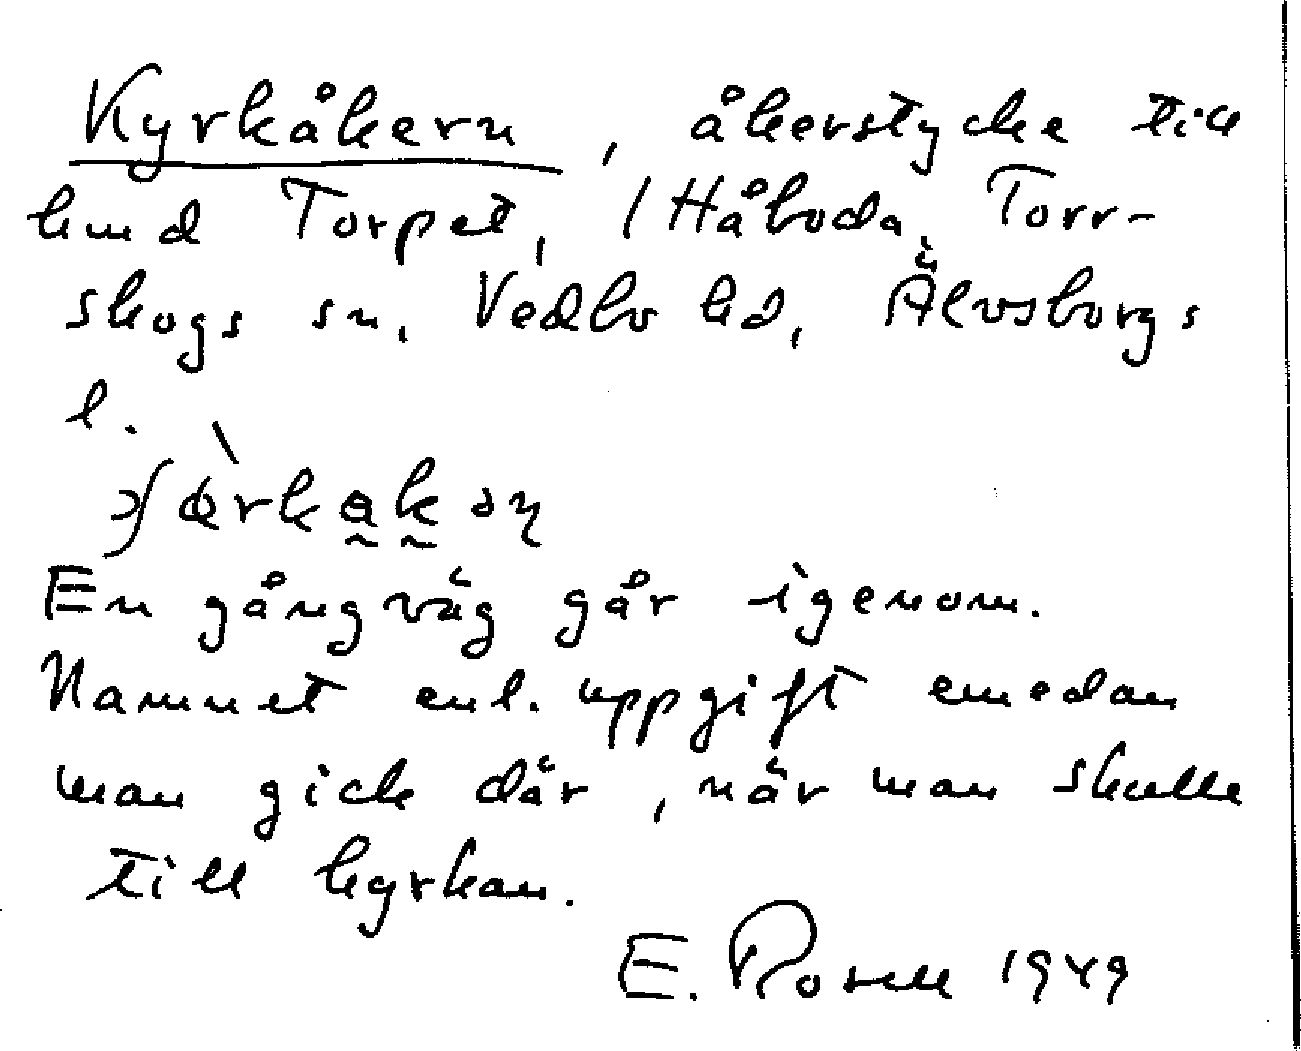 Kyrkåkern, åkerstycke till
hmd Torpet, / Håboda, Torr-
skogs sn, Vedbo hd, Älvsborgs
l.
En gångväg går igenom.
Namnet enl. uppgift emedan
man gick där, när man skulle
till kyrkan.
E. Rosell 1949